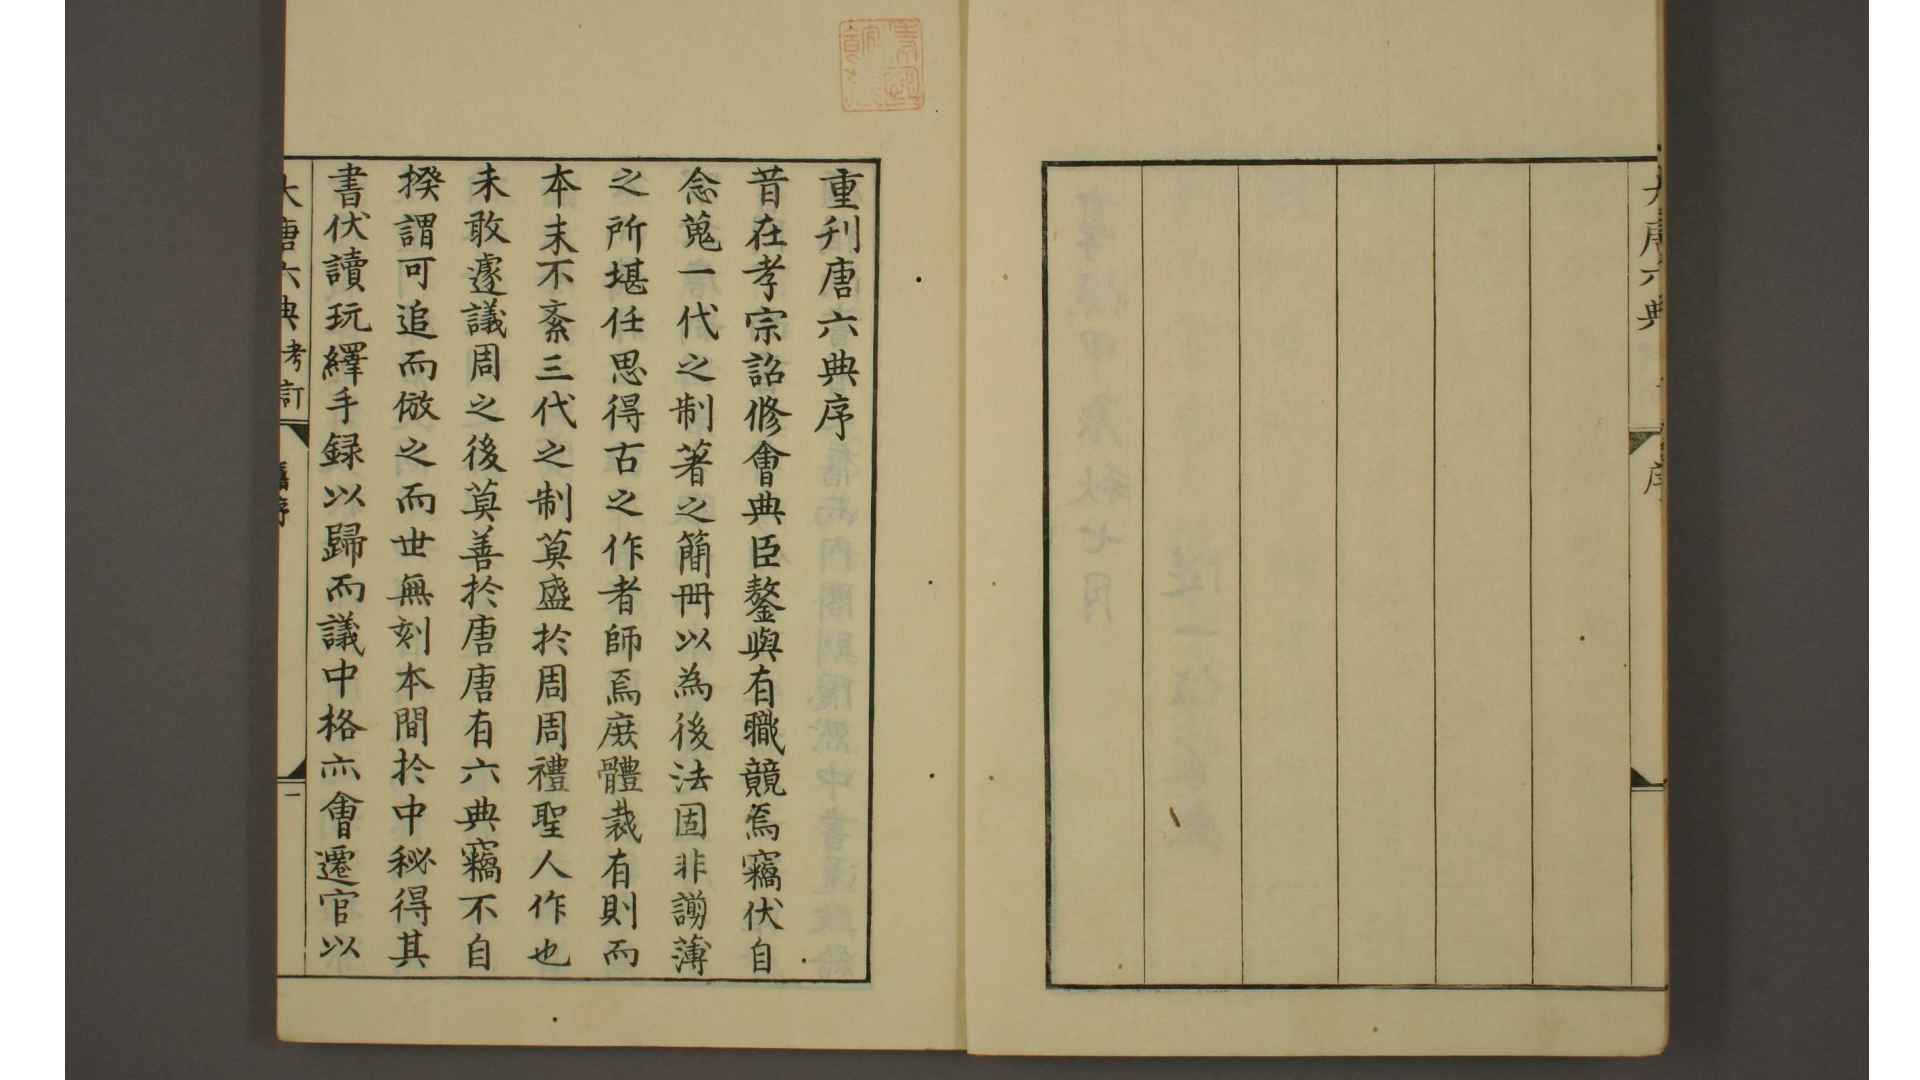 大唐六典
序
重刋唐六典序
昔在孝宗詔修會典臣鏊與有職競焉竊伏自
念蒐一代之制著之簡冊以為後法固非謭薄
之所堪任思得古之作者師焉庻體裁有則而
本末不紊三代之制莫盛於周周禮聖人作也
未敢遽議周之後莫善於唐唐有六典竊不自
揆謂可追而倣之而世無刻本間於中秘得其
書伏讀玩繹手録以歸而議中格亦會遷官以
大唐六典考訂
舊序
一